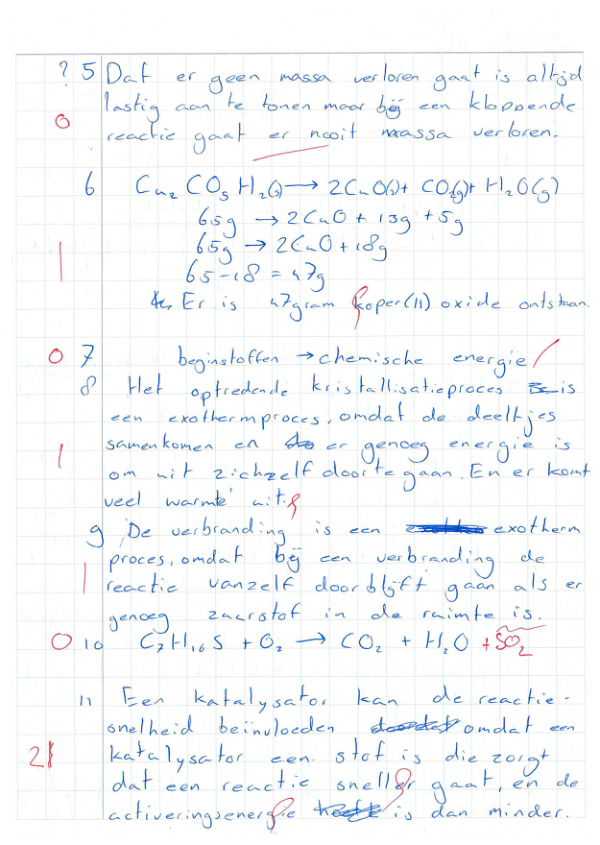 ? 5 Dat er geen massa verloren gaat is altijd
lastig aan te tonen maar bij een kloppende
0 reactie gaat er nooit massa verloren.
6 Cu₂CO₅H₂(s) → 2CuO(s) + CO₂(g) + H₂O(g)
65g → 2CuO + 13g + 5g
65g → 2CuO + 18g
1 65-18 = 47g
Er is 47gram koper(II) oxide ontstaan.
0 7 beginstoffen → chemische energie
8 Het optredende kristallisatieproces is
een exothermproces, omdat de deeltjes
1 samenkomen en er genoeg energie is
om uit zichzelf door te gaan. En er komt
veel warmte uit.
9 De verbranding is een exotherm
proces, omdat bij een verbranding de
1 reactie vanzelf doorblijft gaan als er
genoeg zuurstof in de ruimte is.
0 10 C₇H₁₆S + O₂ → CO₂ + H₂O + SO₂
11 Een katalysator kan de reactie-
snelheid beïnvloeden omdat een
2 katalysator een stof is die zorgt
dat een reactie sneller gaat, en de
activeringsenergie is dan minder.